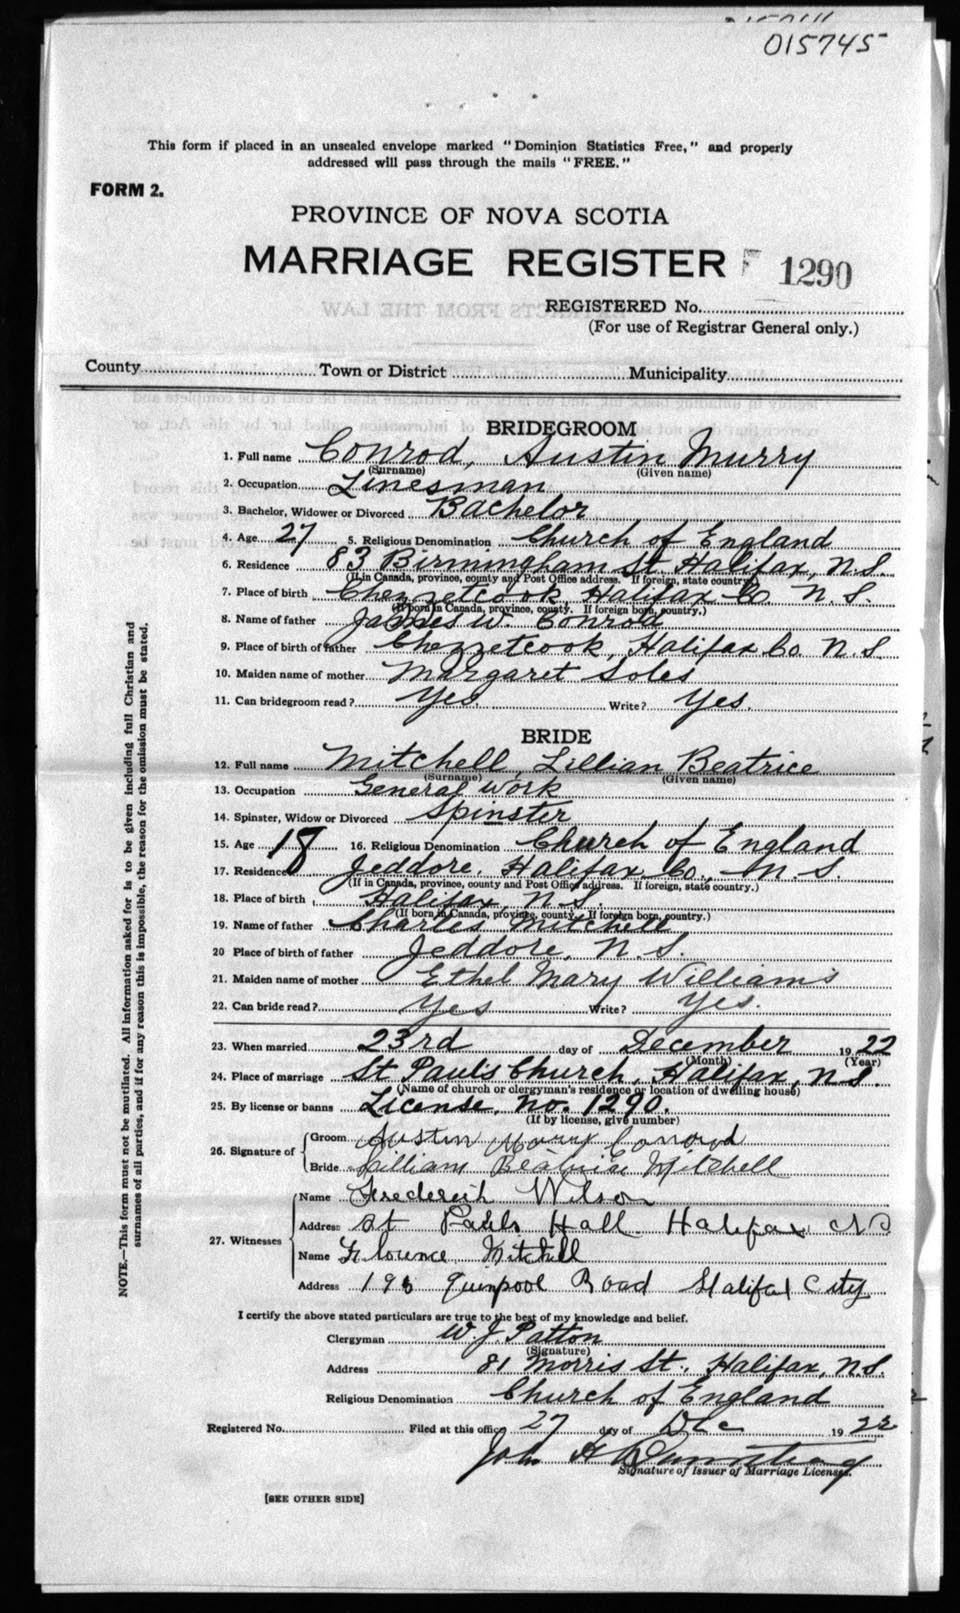 015745
This form if placed in an unsealed envelope marked "Dominion Statistics Free," and properly
addressed will pass through the mails "FREE."
FORM 2.
PROVINCE OF NOVA SCOTIA
MARRIAGE REGISTER 1290
REGISTERED No.
(For use of Registrar General only.)
County Town or District Municipality
BRIDEGROOM
1. Full name Conrod, Austin Murry
(Surname) (Given name)
2. Occupation Linesman
3. Bachelor, Widower or Divorced Bachelor
4. Age 27 5. Religious Denomination Church of England
6. Residence 83 Birmingham St. Halifax, N.S.
(If in Canada, province, county and Post Office address. If foreign, state country.)
7. Place of birth Chezzetcook, Halifax Co N.S.
(If born in Canada, province, county. If foreign born, country.)
8. Name of father James W. Conrod
9. Place of birth of father Chezzetcook, Halifax Co. N.S.
10. Maiden name of mother Margaret Soles
11. Can bridegroom read? Yes. Write? Yes.
BRIDE
12. Full name Mitchell, Lillian Beatrice
(Surname) (Given name)
13. Occupation General Work
14. Spinster, Widow or Divorced Spinster
15. Age 18 16. Religious Denomination Church of England
17. Residence Jeddore, Halifax Co., N.S.
(If in Canada, province, county and Post Office address. If foreign, state country.)
18. Place of birth Halifax, N.S.
(If born in Canada, province, county. If foreign born, country.)
19. Name of father Charles Mitchell
20 Place of birth of father Jeddore, N.S.
21. Maiden name of mother Ethel Mary Williams
22. Can bride read? Yes Write? Yes.
23. When married 23rd day of December 1922
(Month) (Year)
24. Place of marriage St Paul's Church, Halifax, N.S.
(Name of church or clergyman's residence or location of dwelling house)
25. By license or banns License, No. 1290.
(If by license, give number)
26. Signature of
Groom Austin Murry Conrod
Bride Lillian Beatrice Mitchell
27. Witnesses
Name Frederick Wilson
Address St Pauls Hall Halifax NS
Name Florence Mitchell
Address Quinpool Road Halifax City
I certify the above stated particulars are true to the best of my knowledge and belief.
Clergyman W. J. Patton
(Signature)
Address 81 Morris St., Halifax, N.S.
Religious Denomination Church of England
Registered No. Filed at this office 27 day of Dec 1922
John H
Signature of Issuer of Marriage Licenses.
[SEE OTHER SIDE]
NOTE.—This form must not be mutilated. All information asked for is to be given including full Christian and
surnames of all parties, and if for any reason this is impossible, the reason for the omission must be stated.